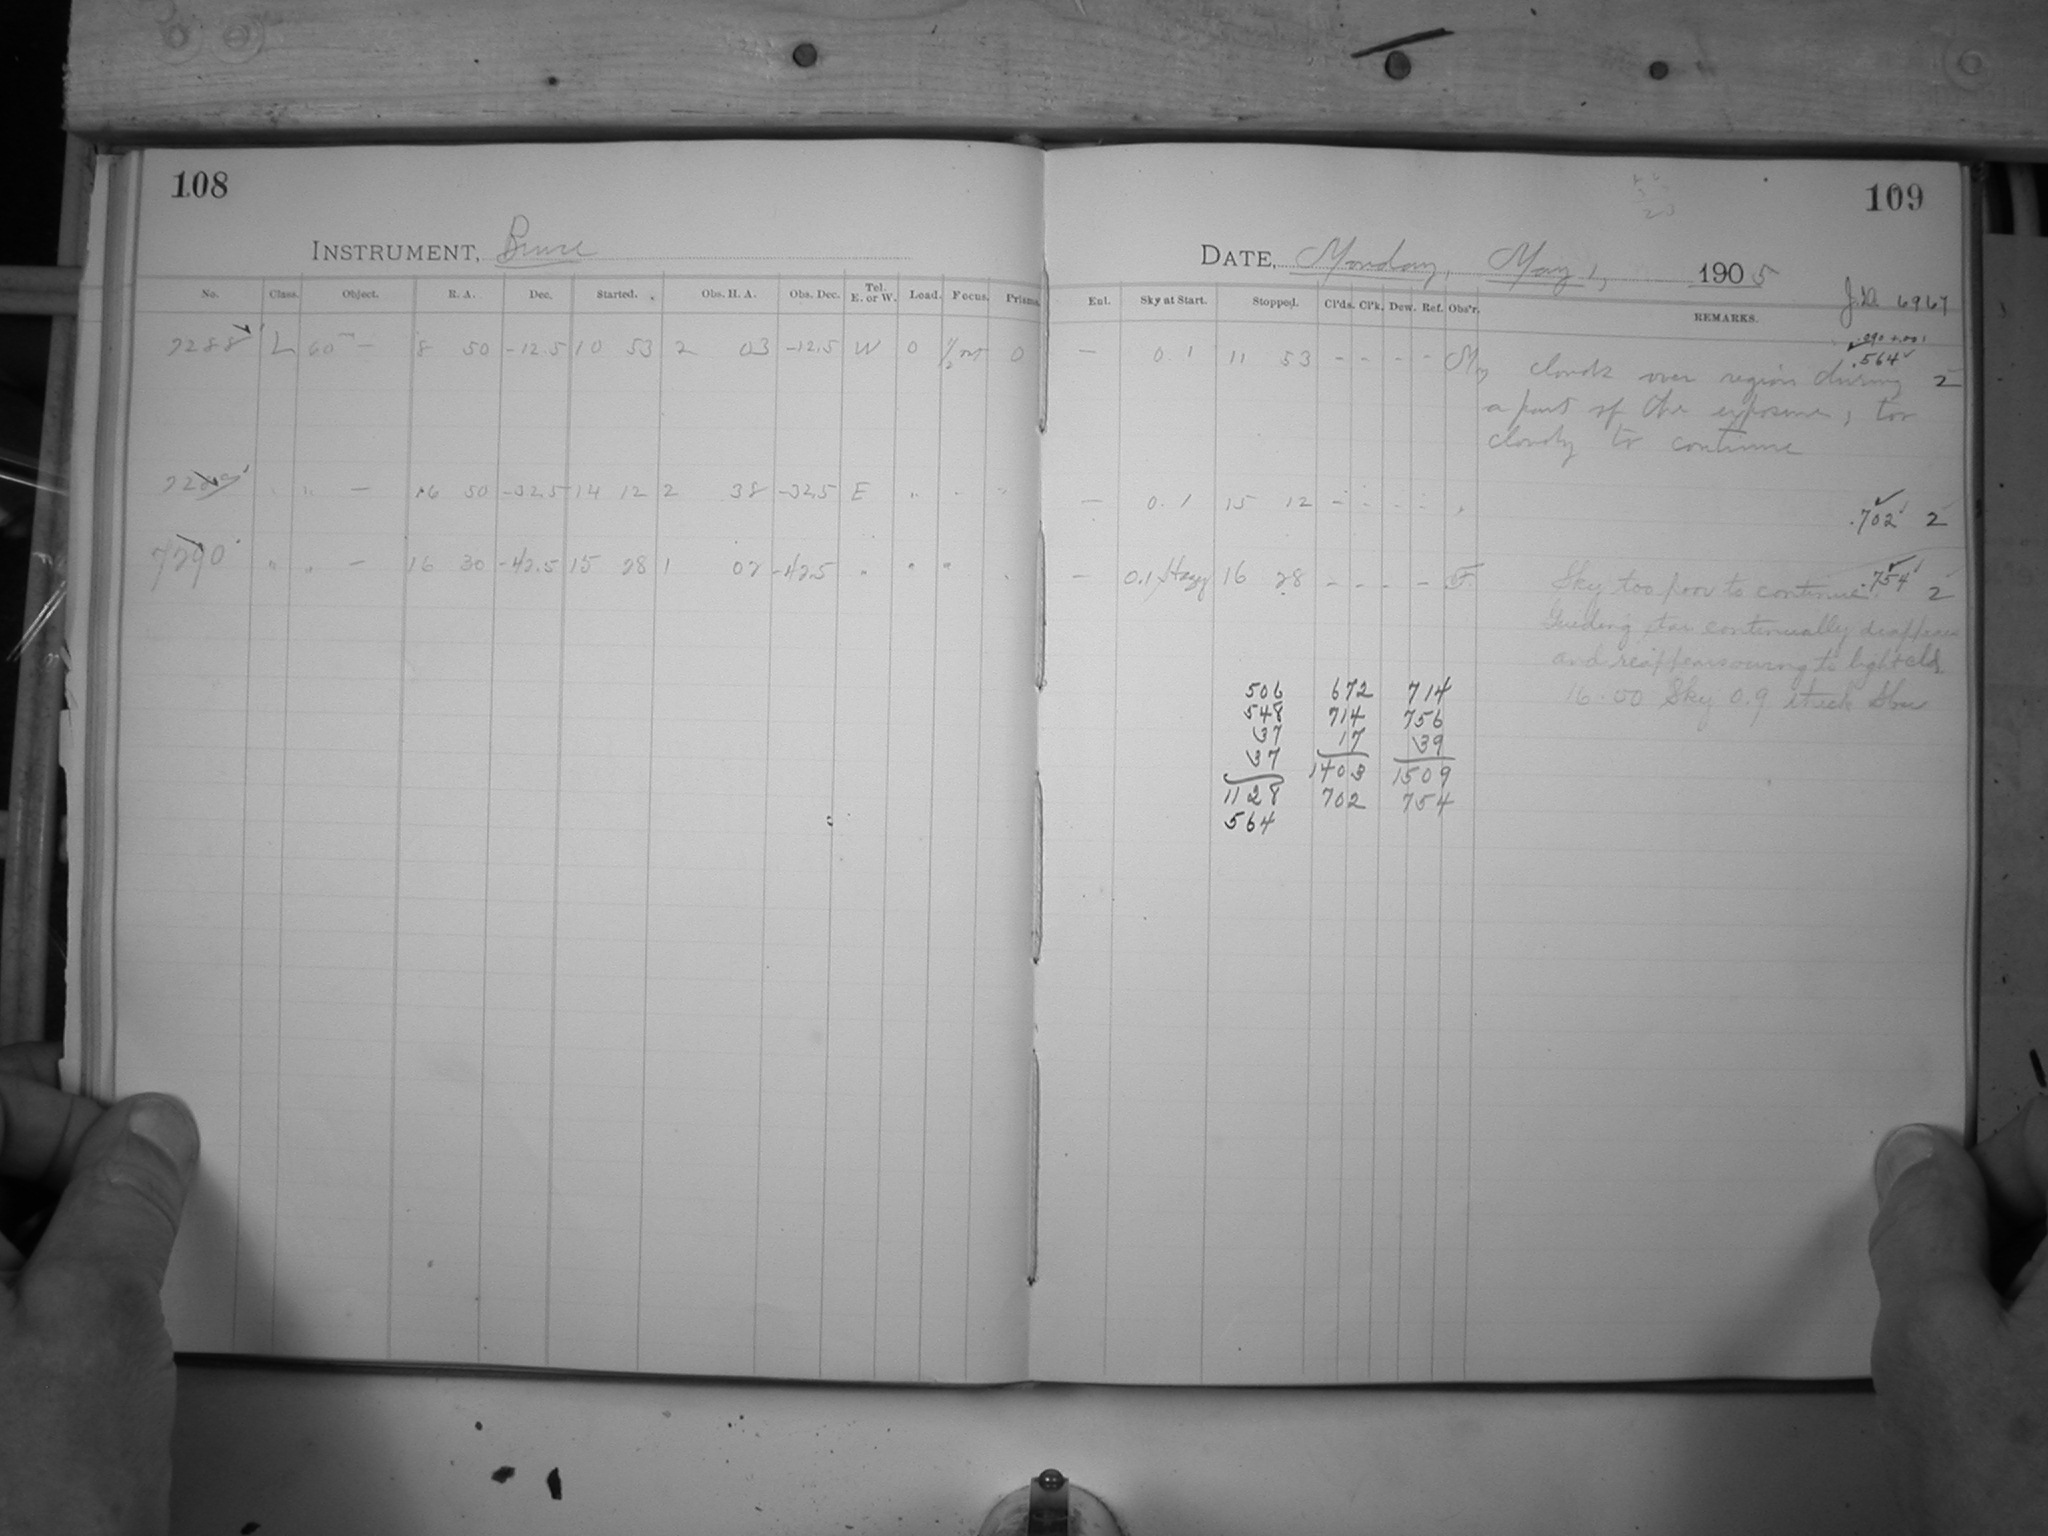 108
INSTRUMENT, Bruce
No. Class. Object. R. A. Dec. Started. Obs. H. A. Obs. Dec. Tel. E. or W. Load. Focus. Prisms.
7288 L 60m — 8 50 -12.5 10 53 2 03 -12.5 W 0 0
" " — 16 50 -32.5 14 12 2 38 -32.5 E " " "
7290 " " — 16 30 -42.5 15 28 1 02 -42.5 " " "
109
DATE, Monday, May 1, 1905
J.D. 6967
Eul. Sky at Start. Stopped. Cl'ds. Cl'k. Dew. Ref. Obs'r. REMARKS.
— 0.1 11 53 - - - - .564 2
clouds over region during
a part of the exposure, too
cloudy to continue
— 0.1 15 12 - - - - .702 2
— 0.1 Hazy 16 28 - - - - F. Sky too poor to continue. .754 2
Guiding star continually disappears
and reappears owing to light clds
16.00 Sky 0.9 thick
506 672 714
548 714 756
37 17 39
37 1403 1509
1128 702 754
564